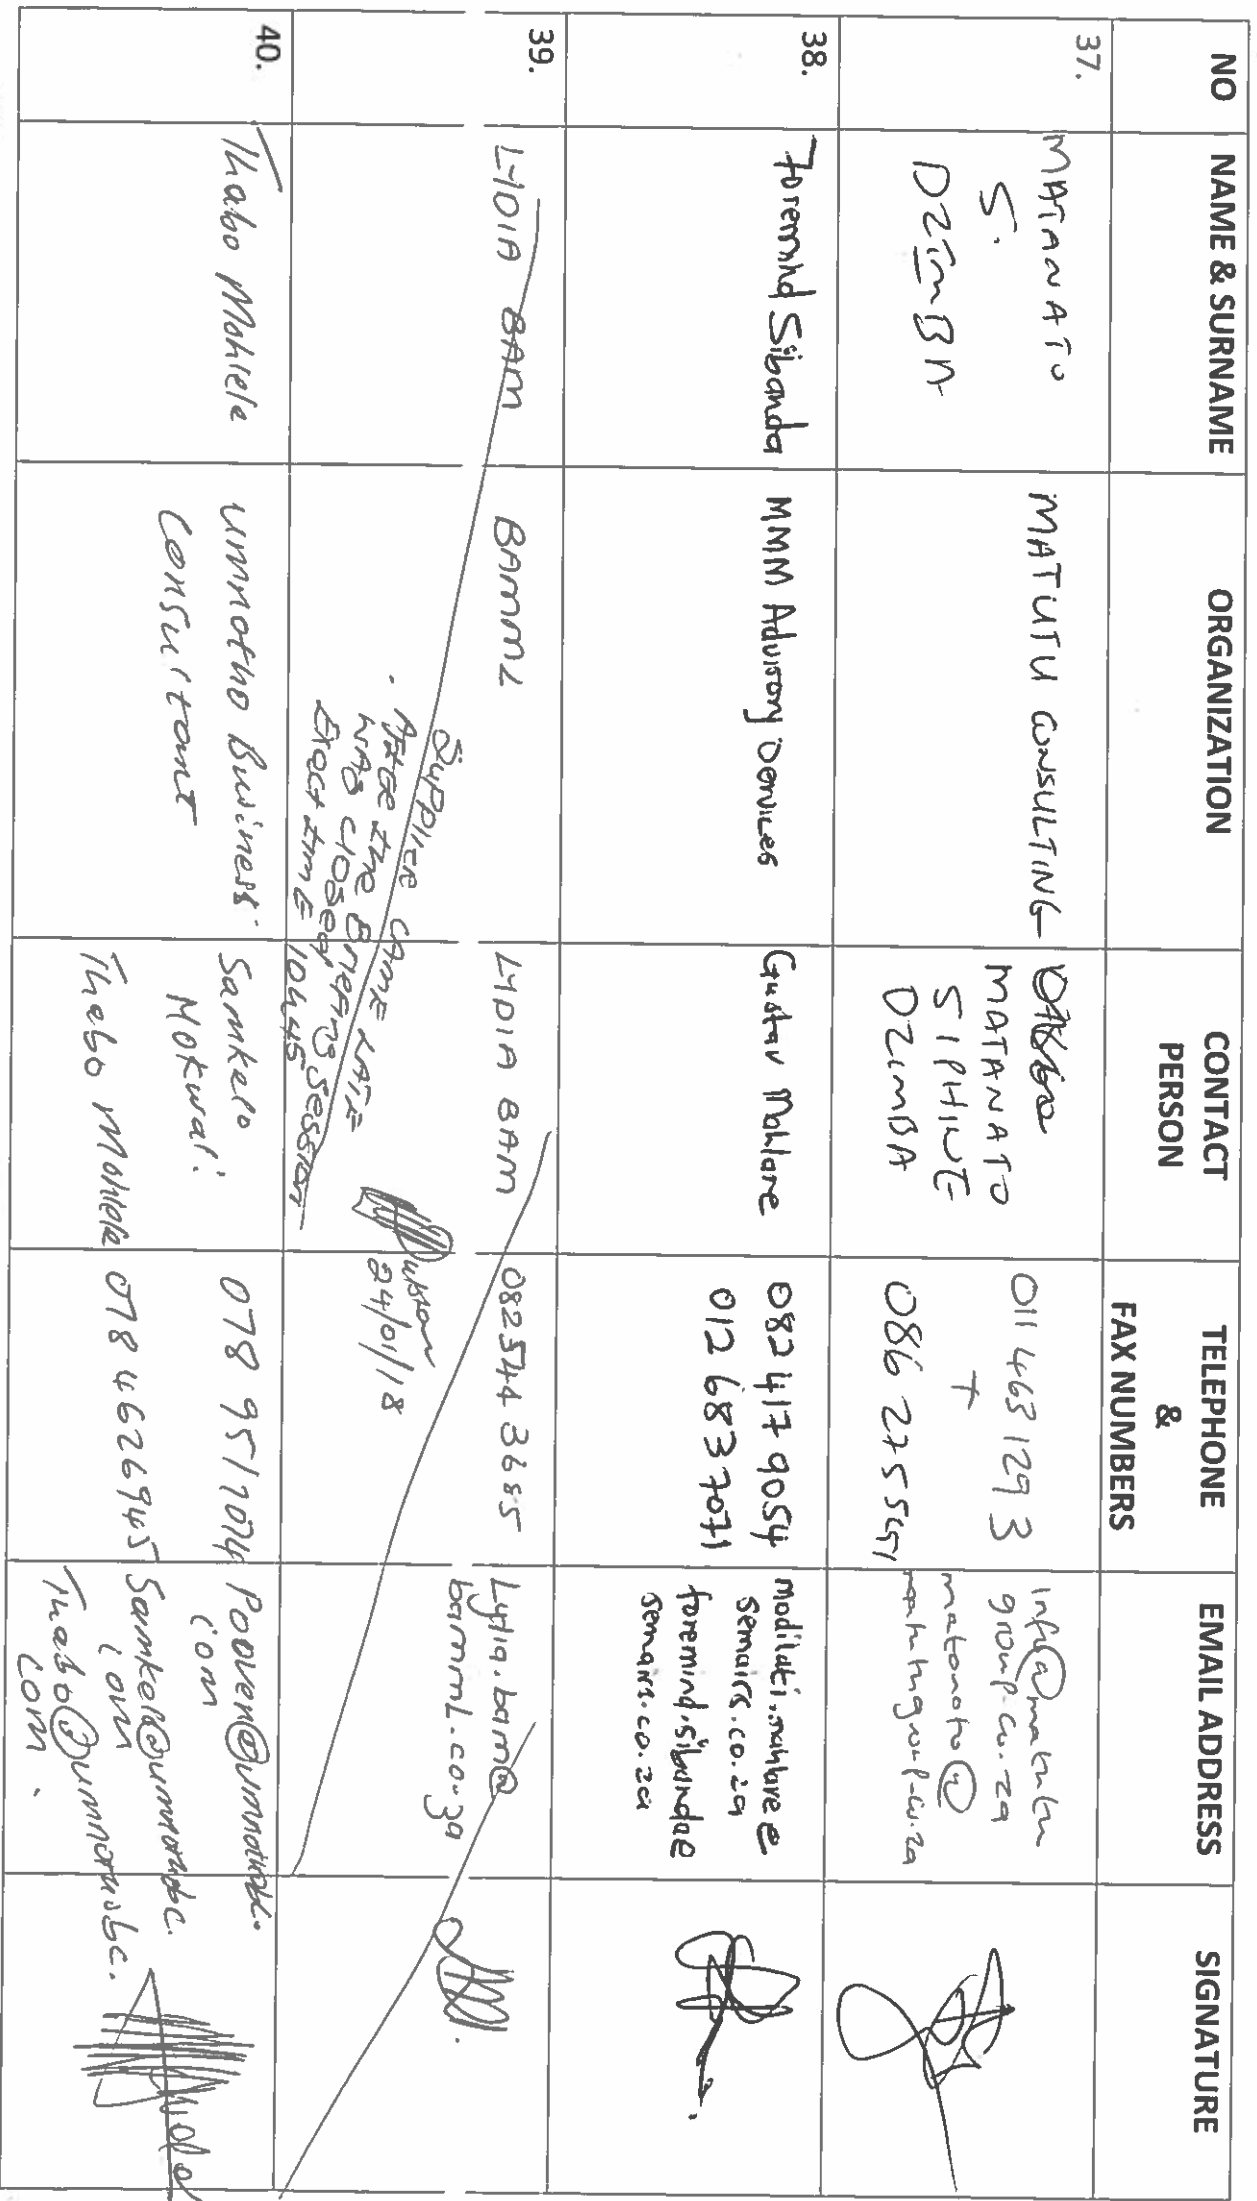 NO
NAME & SURNAME
ORGANIZATION
CONTACT
PERSON
TELEPHONE
&
FAX NUMBERS
EMAIL ADDRESS
SIGNATURE
37.
MATANATO
S.
DZIMBA
MATUTU CONSULTING
MATANATO
SIPHIWE
DZIMBA
011 463 1293
+
086 275 5451
info@matutu
group.co.za
matanato@
matutugroup.co.za
38.
Foremind Sibanda
MMM Advisory Services
Gustav Mahlare
082 417 9054
012 683 7071
modilati.mahlare@
semairs.co.za
foremind.sibanda@
semairs.co.za
39.
LYDIA BAM
BAMML
LYDIA BAM
082 544 3685
Lydia.bam@
bamml.co.za
Supplier came late
. After the Briefing session
was closed
Exact time 10h45
24/01/18
40.
Thabo Mohlele
umnotho Business
Consultant
Samkelo
Mokwai.
Thabo Mohlele
078 951 7074
078 4626945
Pooven@umnothobc.
com
Samkelo@umnothobc.
com
Thabo@umnothobc.
com.